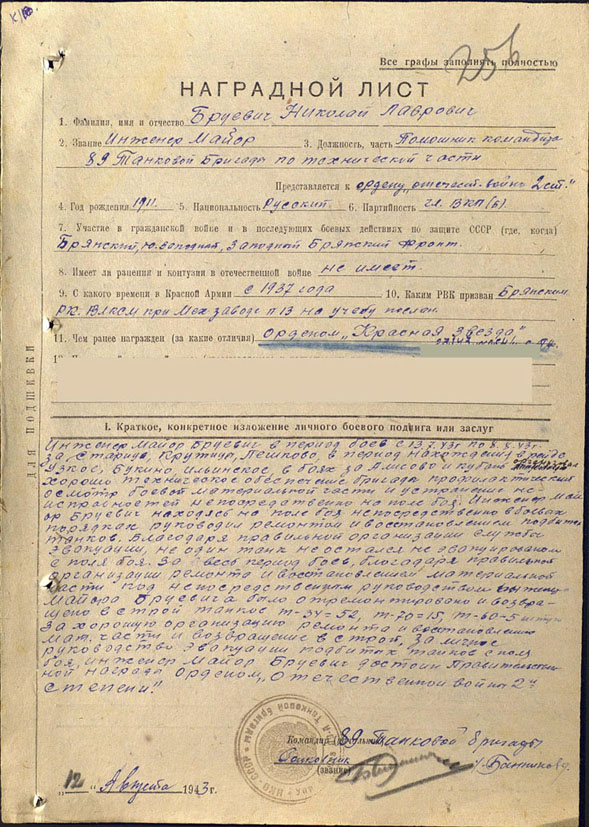 256
Все графы заполнять полностью
НАГРАДНОЙ ЛИСТ
1. Фамилия, имя и отчество Бруевич Николай Лаврович
2. Звание Инженер Майор 3. Должность, часть Помошник командира
89 Танковой Бригады по технической части
Представляется к ордену, отечест. войны 2 ст."
4. Год рождения 1911. 5. Национальность русский 6. Партийность чл. ВКП(б).
7. Участие в гражданской войне и в последующих боевых действиях по защите СССР (где, когда)
Брянский, Ю.Западной, Западной Брянский Фронт.
8. Имеет ли ранения и контузии в отечественной войне не имеет.
9. С какого времени в Красной Армии с 1937 года 10. Каким РВК призван Брянским
РК. ВЛКСМ при Мехзаводе п 13 на учебу послан.
11. Чем ранее награжден (за какие отличия) орденом „Красная звезда"
I. Краткое, конкретное изложение личного боевого подвига или заслуг
Инженер Майор Бруевич в период боев с 13.7.43г по 8.8.43г.
за, Старица, Крутица, Лешково, в период нахождения в рейде
Узкое, Букино, Ильинское, в боях за
хорошо техническое обеспечение бригады профилактическим
осмотр боевой материальной части и устранение не
исправностей непосредственно на поле боя. Инженер Май
ор Бруевич находясь на поле боя непосредственно в боевых
порядках руководил ремонтом и восстановлением подбитых
танков. Благодаря правильной организации службы
эвакуации, не один танк не остался не эвакуированом
с поля боя. За весь период боев, благодаря правильной
организации ремонта и восстановлению материальной
части под непосредственным руководством
Майора Бруевича было отремонтировано и возвра-
щено в строй танков т-34-52, т-70-15, т-60-5 штук
За хорошую организацию ремонта и восстановлению
мат. части и возвращение в строй, за личное
руководство эвакуации подбитых танков с поля
боя, инженер Майор Бруевич достоин Правительствен-
ной награды Орденом, Отечественной войны 2й
степени."
Командир 89 Танковой бригады
Полковник
(звание) /Банников/.
"12" Августа 1943 г.
ДЛЯ ПОДШИВКИ